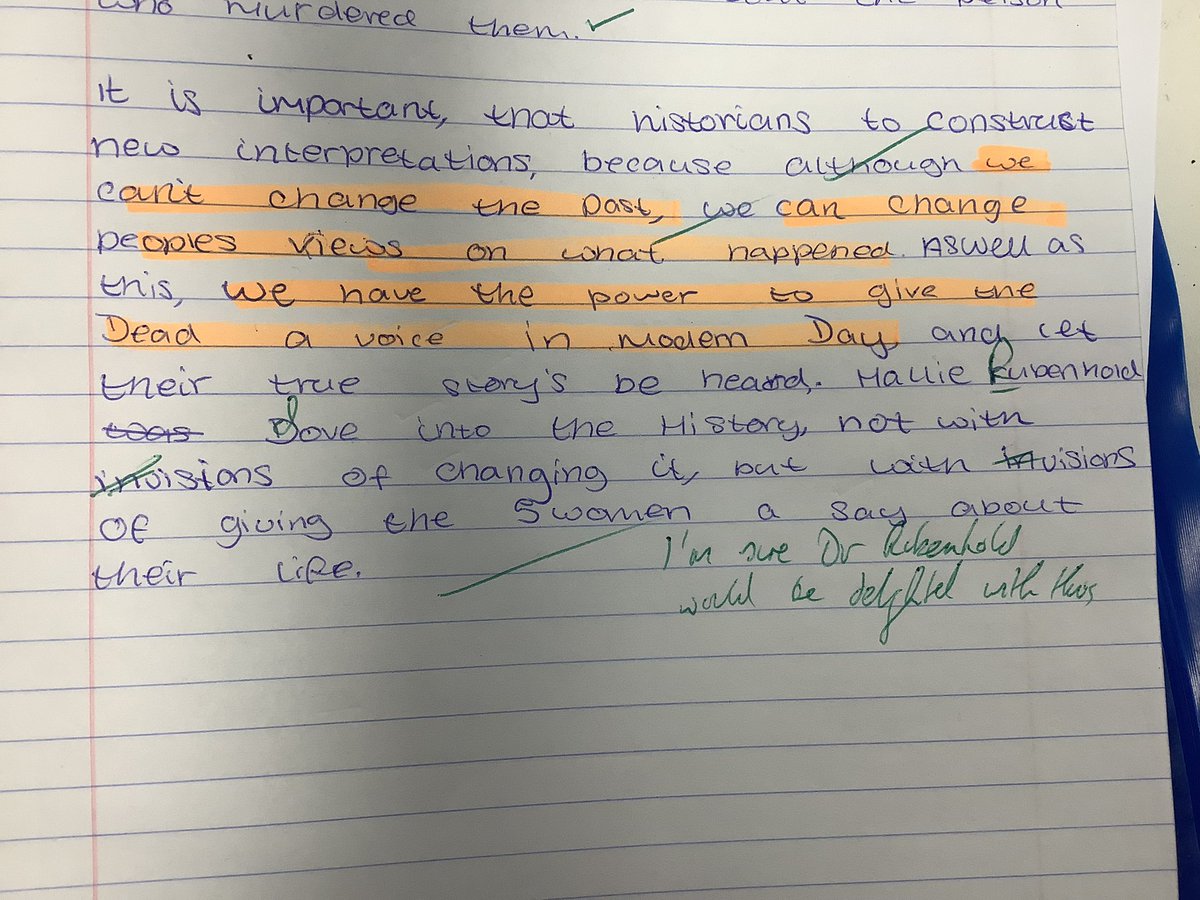 who murdered the person
them.
It is important, that historians to construct
new interpretations, because although we
can't change the past, we can change
peoples views on what happened. Aswell as
this, we have the power to give the
Dead a voice in modern Day, and let
their true story's be heard. Hallie Rubenhold
Dove into the History, not with
visions of changing it, but with visions
of giving the 5 women a say about
their life.
I'm sure Dr Rubenhold
would be delighted with this